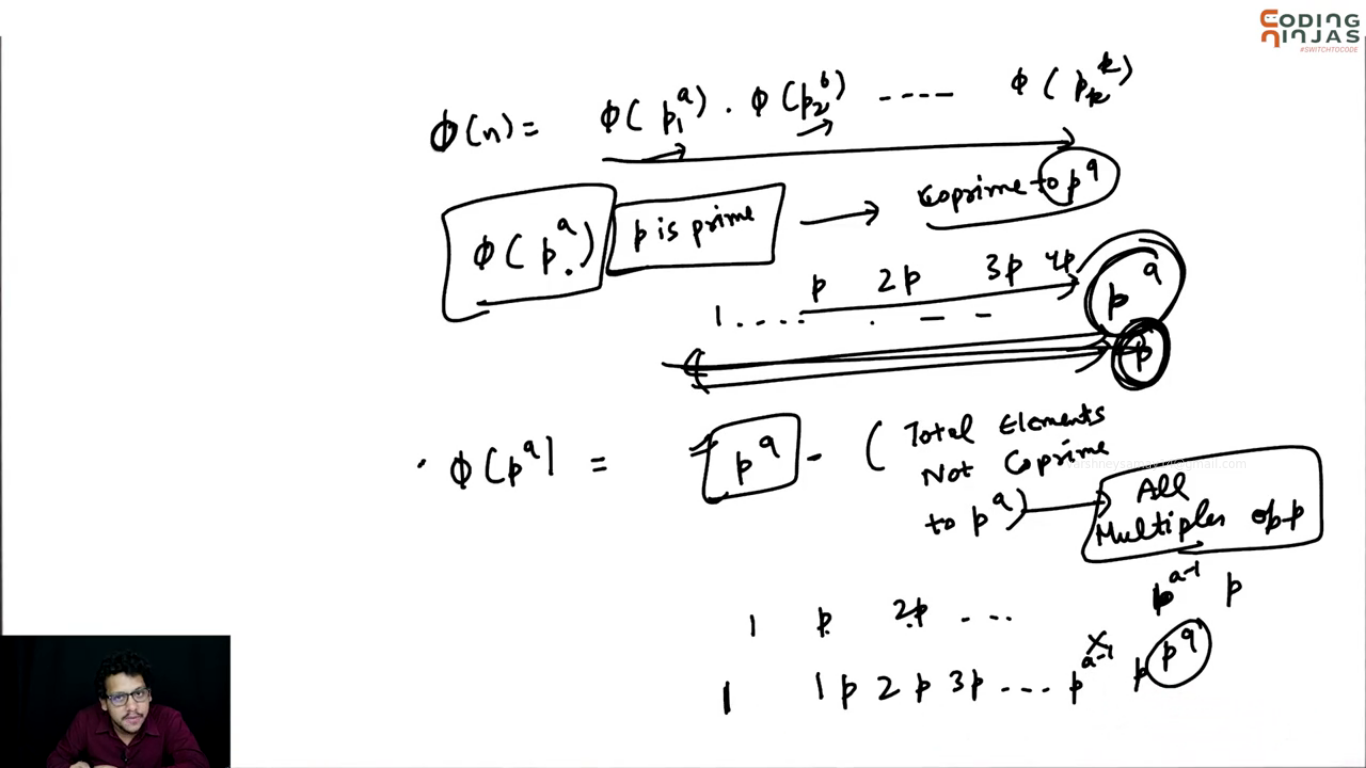 CODING
NINJAS
#SWITCHTOCODE
ϕ(n) = ϕ(p₁ᵃ) . ϕ(p₂ᵇ) ---- ϕ(pₖᵏ)
ϕ(pᵃ) p is prime → coprime to pᵃ
p 2p 3p 4p pᵃ
1 .... . - -
p
ϕ(pᵃ) = pᵃ - ( Total Elements
Not Coprime
to pᵃ)
All
Multiples of p
pᵃ⁻¹ p
1 p 2p ....
1 1p 2p 3p ... pᵃ⁻¹ p pᵃ